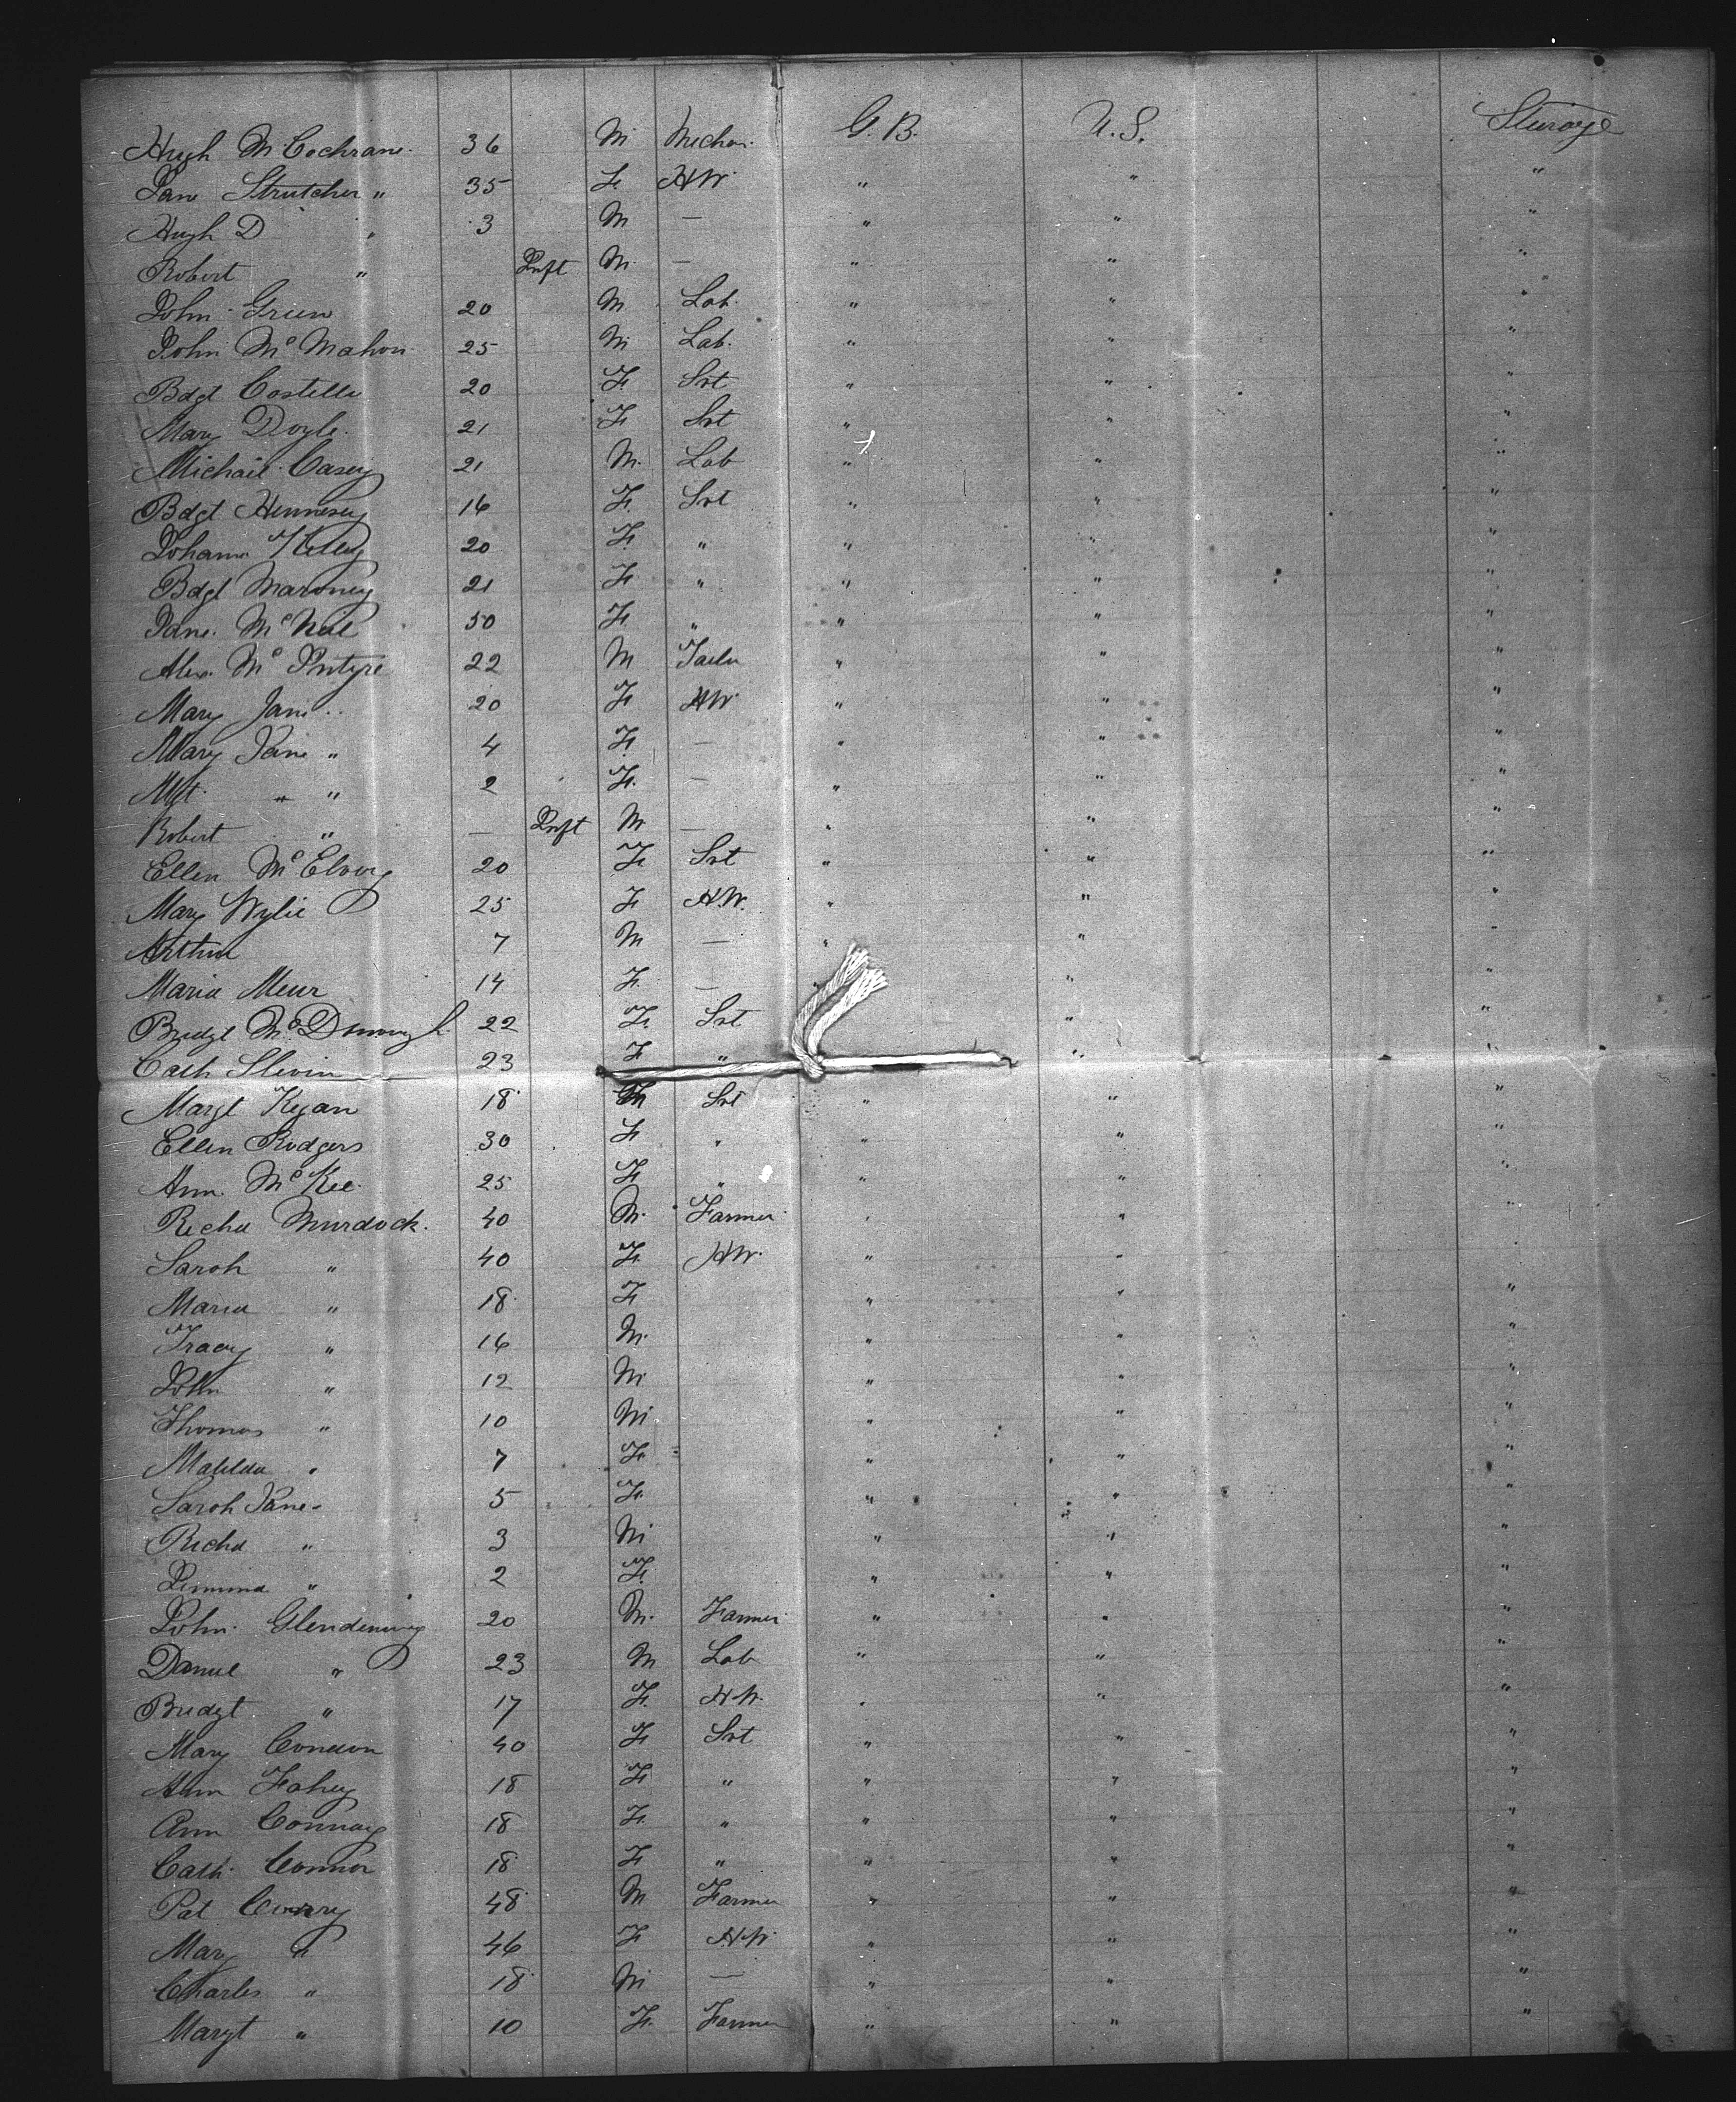 Hugh M. Cochrane 36 M Mechan. G. B. U. S. Steerage
Jane Strutcher " 35 F HW " " "
Hugh D " 3 M — " " "
Robert " Inft M — " " "
John Green 20 M Lab. " " "
John McMahon 25 M Lab. " " "
Bdgt Costello 20 F Svt " " "
Mary Doyle 21 F Svt " " "
Michael Casey 21 M. Lab " " "
Bdgt Hennesey 16 F. Svt " " "
Johana Kelley 20 F. " " " "
Bdgt Maroney 21 F " " " "
Jane McNeil 50 F " " " "
Alex. McIntyre 22 M Tailor " " "
Mary Jane " 20 F HW " " "
Mary Jane " 4 F. — " " "
Mgt. " " 2 F. — " " "
Robert " — Inft M — " " "
Ellen McElvoy 20 F Svt " " "
Mary Wylie 25 F H.W. " " "
Arthur 7 M — " " "
Maria Meur 14 F. — " " "
Bridgt McDonough 22 F. Svt " "
Cath Slevin 23 F " " "
Margt Kyan 18 F Svt " " "
Ellen Rodgers 30 F " " " "
Ann McKee 25 F " " " "
Richd Murdock. 40 M. Farmer " " "
Sarah " 40 F. HW. " " "
Maria " 18 F " " "
Tracy " 16 M. " " "
John " 12 M " " "
Thomas " 10 M " " "
Matilda " 7 F " " "
Sarah Jane " 5 F. " " "
Richd " 3 M " " "
Jemima " 2 F. " " "
John Glendenning 20 M. Farmer " " "
Daniel " 23 M Lab " " "
Bridgt " 17 F. H.W. " " "
Mary Condon 40 F Svt " " "
Ann Fahey 18 F " " " "
Ann Conway 18 F. " " " "
Cath. Connor 18 F " " " "
Pat Conry 48 M Farmer " " "
Mary " 46 F H.W. " " "
Charles " 18 M — " " "
Margt " 10 F. Farmer " " "